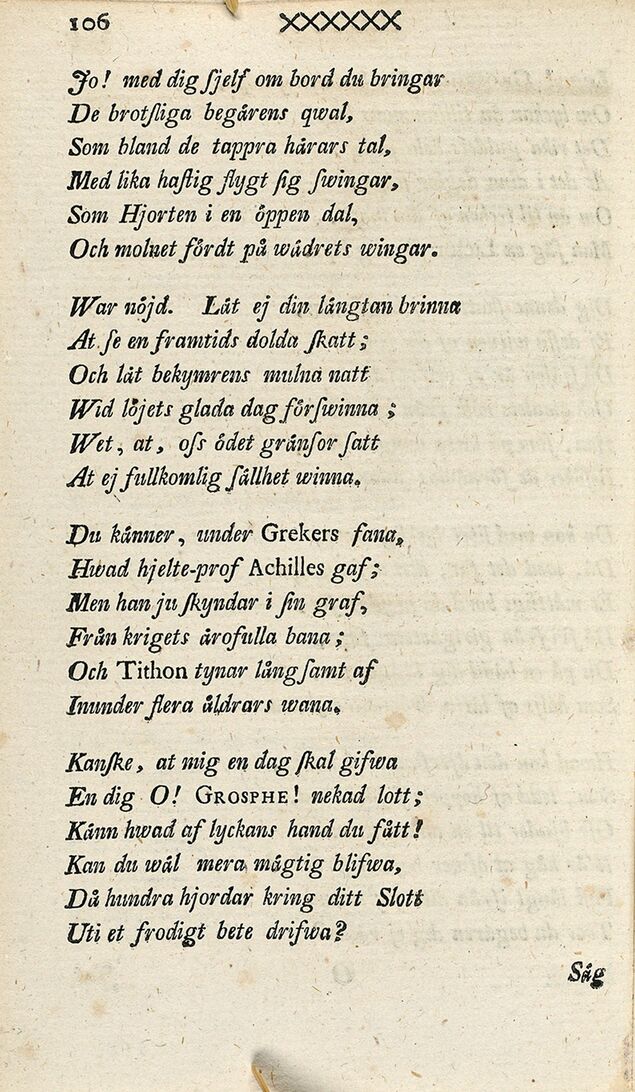 106 XXXXXX
Jo! med dig ſjelf om bord du bringar
De brotſliga begårens qwal,
Som bland de tappra hårars tal,
Med lika haſtig flygt ſig ſwingar,
Som Hjorten i en öppen dal,
Och molnet fördt på wådrets wingar.
War nöjd. Låt ej din långtan brinna
At ſe en framtids dolda ſkatt;
Och låt bekymrens mulna natt
Wid löjets glada dag förſwinna;
Wet, at, oſs ödet grånſor ſatt
At ej fullkomlig ſållhet winna.
Du kånner, under Grekers fana,
Hwad hjelte-prof Achilles gaf;
Men han ju ſkyndar i ſin graf,
Från krigets årofulla bana;
Och Tithon tynar långſamt af
Inunder flera åldrars wana.
Kanſke, at mig en dag ſkal gifwa
En dig O! GROSPHE! nekad lott;
Kånn hwad af lyckans hand du fått!
Kan du wål mera mågtig blifwa,
Då hundra hjordar kring ditt Slott
Uti et frodigt bete drifwa?
Såg